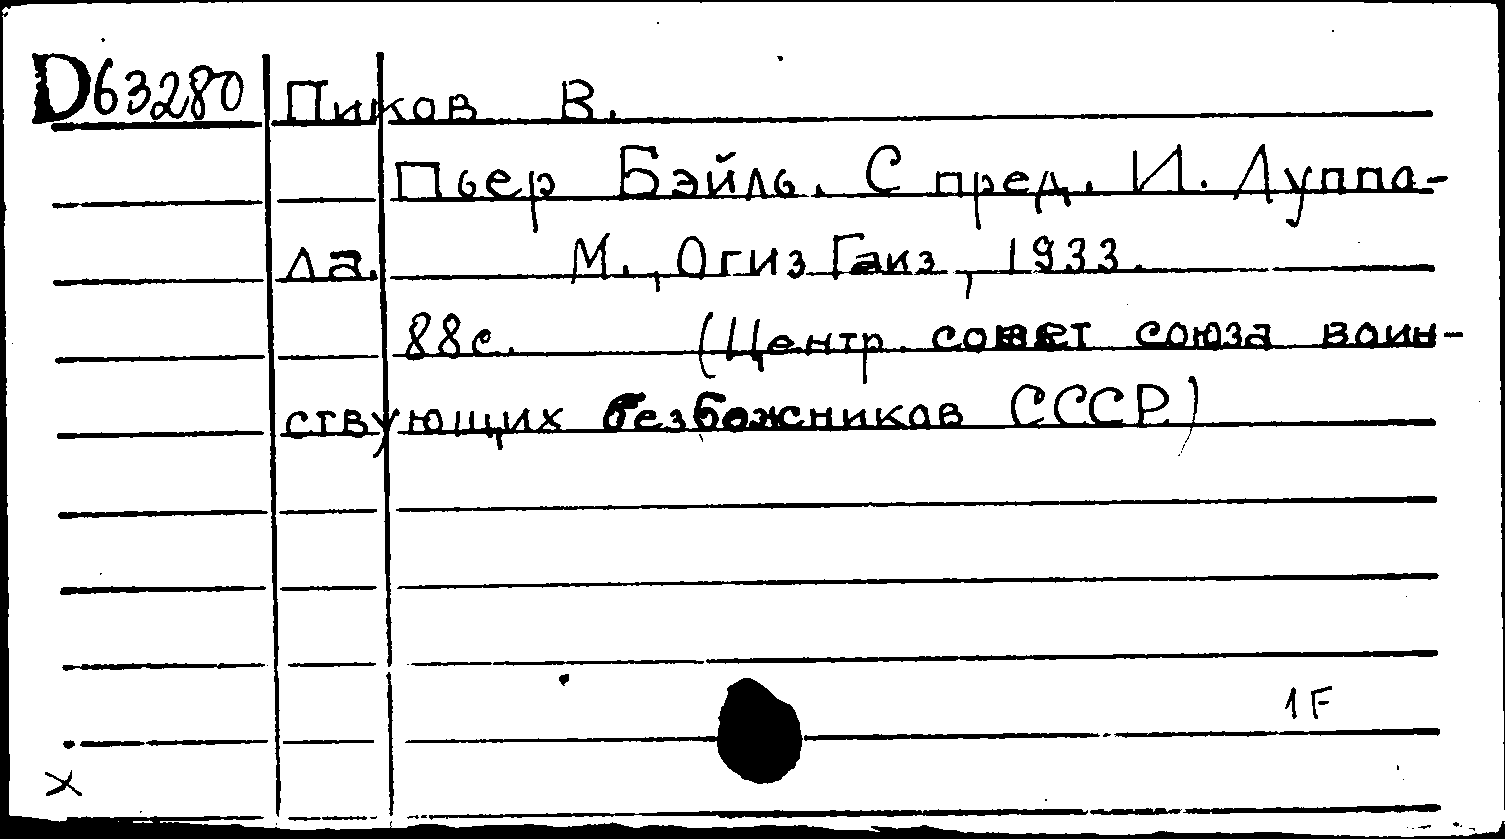 D63280 Пиков В.
Пьер Бэйль. С пред. И. Луппа-
ла. М., Огиз Гаиз, 1933.
88с. (Центр. совет союза воин-
ствующих безбожников СССР)
1F
X